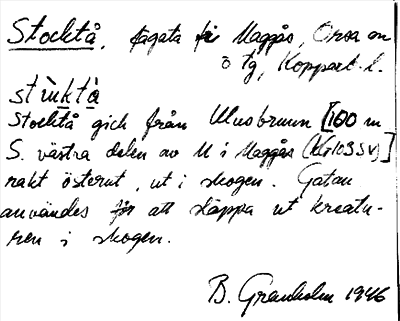 Stocktå, fägata på Maggås, Orsa sn
o tg, Kopparb. l.
stùktà
Stocktå gick från Musbrunn [100 m
S. västra delen av U i Maggås (Kr103SV)]
rakt österut, ut i skogen. Gatan
användes för att släppa ut kreatu-
ren i skogen.
B. Granholm 1946